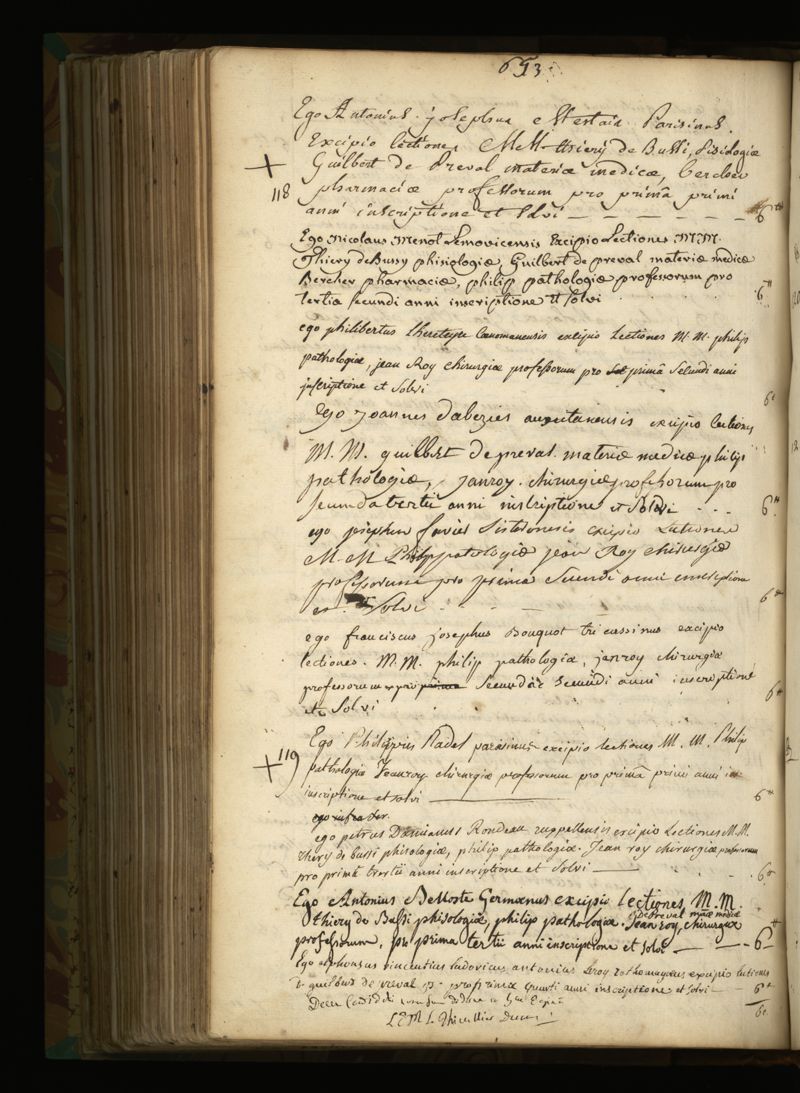 613
Ego Antonius josephus Parisinus.
Excipio lectiones MM. thiery de Bussi, fisiologiæ
Guilbert de Preval materiæ medicæ, bercher
+
118 pharmaciæ professorum pro primâ primi
anni inscriptione et solvi — — — — — — 6
Ego Nicolaus Menot Lemovicensis Excipio Lectiones M M.
Thiery de Bussy phisiologiæ, Guilbert de preval materiæ medicæ
Bercher pharmaciæ, philip pathologiæ professorum pro
tertia secundi anni inscriptione et solvi 6
ego philibertus cœnomanensis excipio Lectiones M. M. philip
pathologiæ, jean Roy chirurgiæ professorum pro primâ secundi anni
inscriptione et solvi 6
Ego joannes dabezies auxitanensis excipio lectiones
M. M. guilbert de preval materiæ medicæ philip
pathologiæ, janroy chirurgiæ professorum pro
secunda tertii anni inscriptione et Solvi 6
ego josephus Sisteronensis excipio Lectiones
M. M philip patologiæ jean Roy chirurgiæ
professorum pro prima secundi anni inscriptione
et Solvi 6
ego franciscus josephus Bouquot tricassinus excipio
lectiones. M. M. philip pathologiæ, janroy chirurgiæ
professorum pro prima secundæ secundi anni inscriptione
et Solvi 6
Ego Philippus Radel parisinus excipio lectiones M. M. Philip
+ 119 pathologiæ Jeanroy chirurgiæ professorum pro primâ primi anni in
inscriptione et solvi 6
ego infra
ego petrus Damianus Rondeau ruppellensis excipio Lectiones M. M.
thiery de bussi phisologiæ, philip pathologiæ. Jean roy chirurgiæ professorum
pro primâ tertii anni inscriptione et Solvi 6
Ego Antonius Bellosté Germanus excipio lectiones, M. M.
de Preval mæ medicæ
thiery de Bussi phisologiæ, philip pathologiæ. Jean roy, chirurgiæ
professorum, pro prima tertii anni inscriptione et solvi — — 6
Ego alphonsus vincentius ludovicus antonius Leroy rothomagæus excipio lectiones
D. guilbert de preval pro prima quarti anni inscriptione et solvi 6
L. P. F. R. Le Thieullier